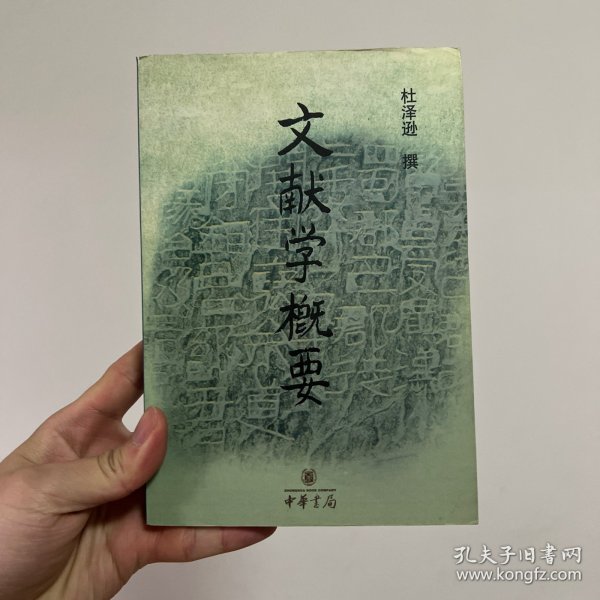 杜泽逊 撰
文献学概要
ZHONGHUA BOOK COMPANY
中華書局
孔夫子旧书网
www.kongfz.com